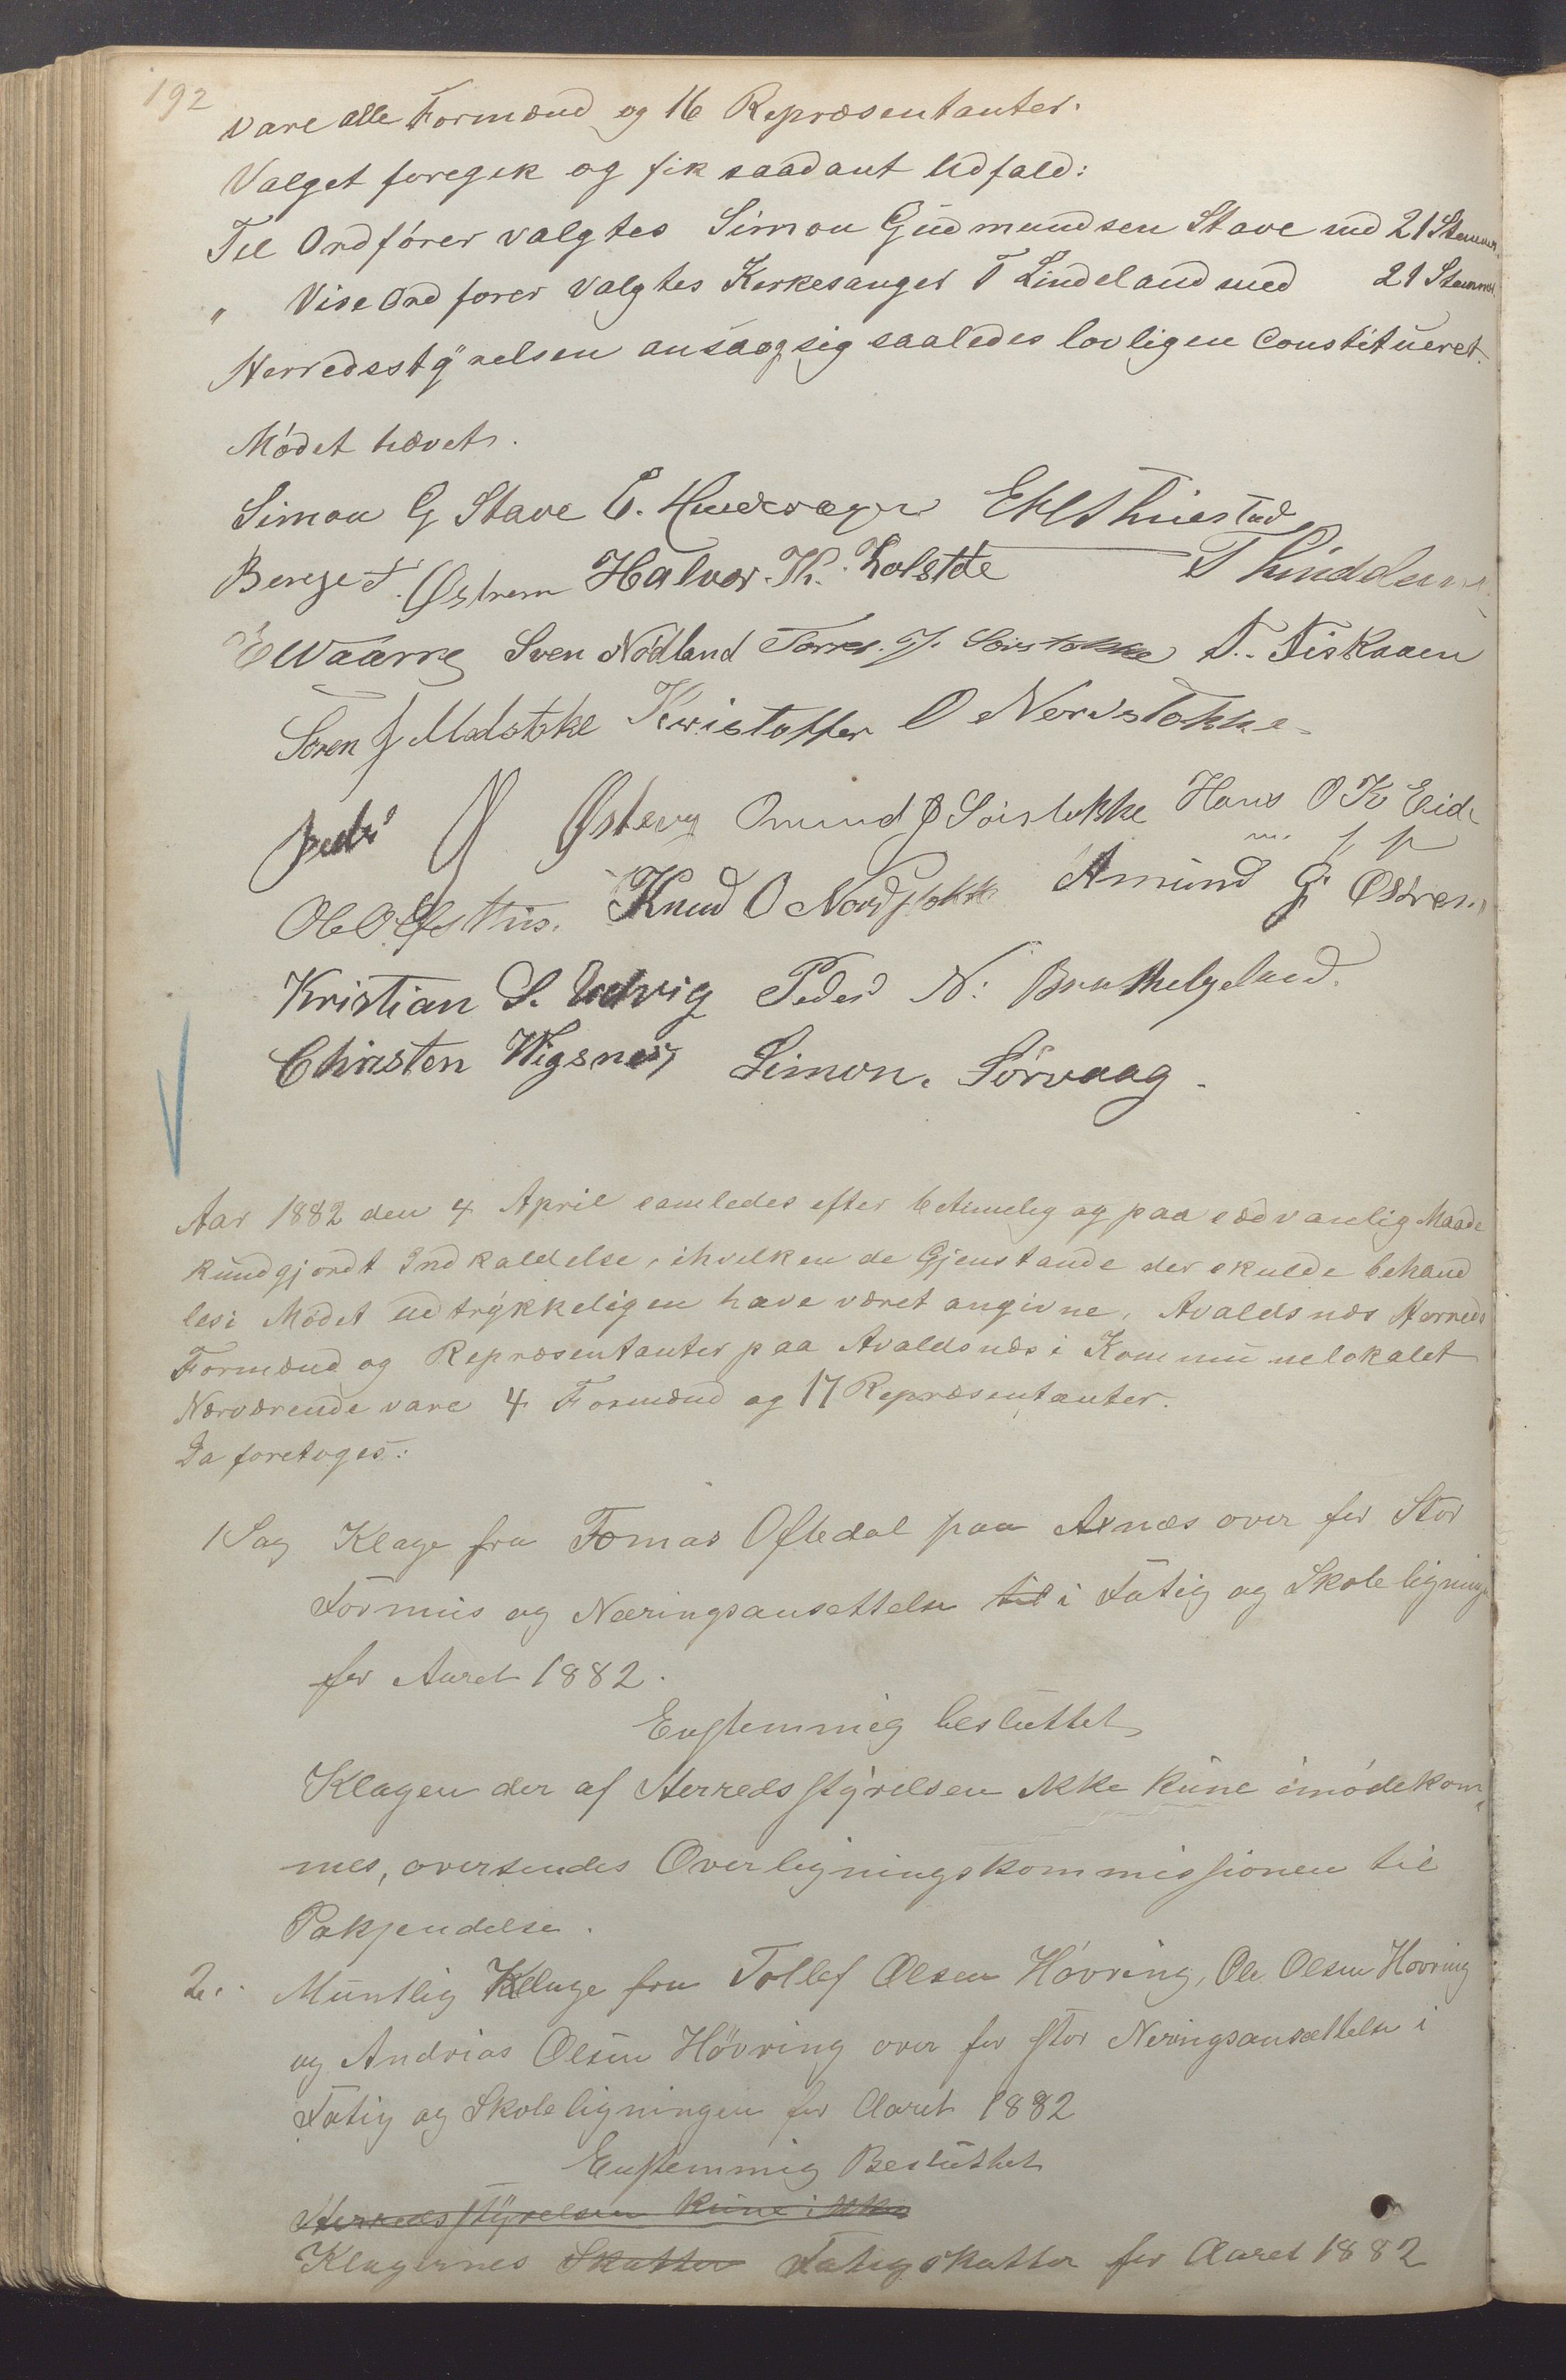 192
vare alle Formænd og 16 Repræsentanter.
Valget foregik og fik saadant Udfald:
Til Ordförer valgtes Simon Gudmundsen Stave md 21 Stemmer
" Vise Ordförer valgtes Kirkesanger T Lindeland med 21 Stemmer
Herredsstyrelsen ansaa sig saaledes lovligen Constitueret.
Mödet hævet.
Simon G Stave
Berge T. Östrem Halvor. Th. T
Sven Nödland S. Fiskaaen
Sören J Kristoffer O Nordstokke
J Östevig Omund J Sörstokke Hans O K Eide
m. f p
Ole O Knud O Nordstokke Amund G Östrem
Kristian S. Peder N. Brathelgeland.
Christen Wigsnes Simon. Sörvaag.
Aar 1882 den 4 April samledes efter betimelig og paa sædvanlig Maade
kundgjordt Indkaldelse, ihvilken de Gjenstande der skulde behand
les i Mödet udtrykkeligen have været angivne, Avaldsnæs Herreds
Formænd og Repræsentanter paa Avaldsnæs i Kommunelokalet
Nærværende vare 4 Formænd og 17 Repræsentanter.
Da foretoges:
1 Sag Klage fra Tomas Oftedal paa Axnæs over for Stor
Formus og Næringsansettelse til i Fatig og Skoleligningen
for Aaret 1882.
Enstemmig besluttet
Klagen der af Herredsstyrelsen ikke kune imödekom-
mes, oversendes Overligningskommissionen til
Pakjendelse.
2. Muntlig Klage fra Tollef Olsen Hövring, Ole Olsen Hövring
og Andrias Olsen Hövring over for stor Neringsansættelse i
Fatig og Skoleligningen for Aaret 1882
Enstemmig Besluttet
Herredsstyrelsen kune ikke
Klagernes Skatter Fatigskatter for Aaret 1882